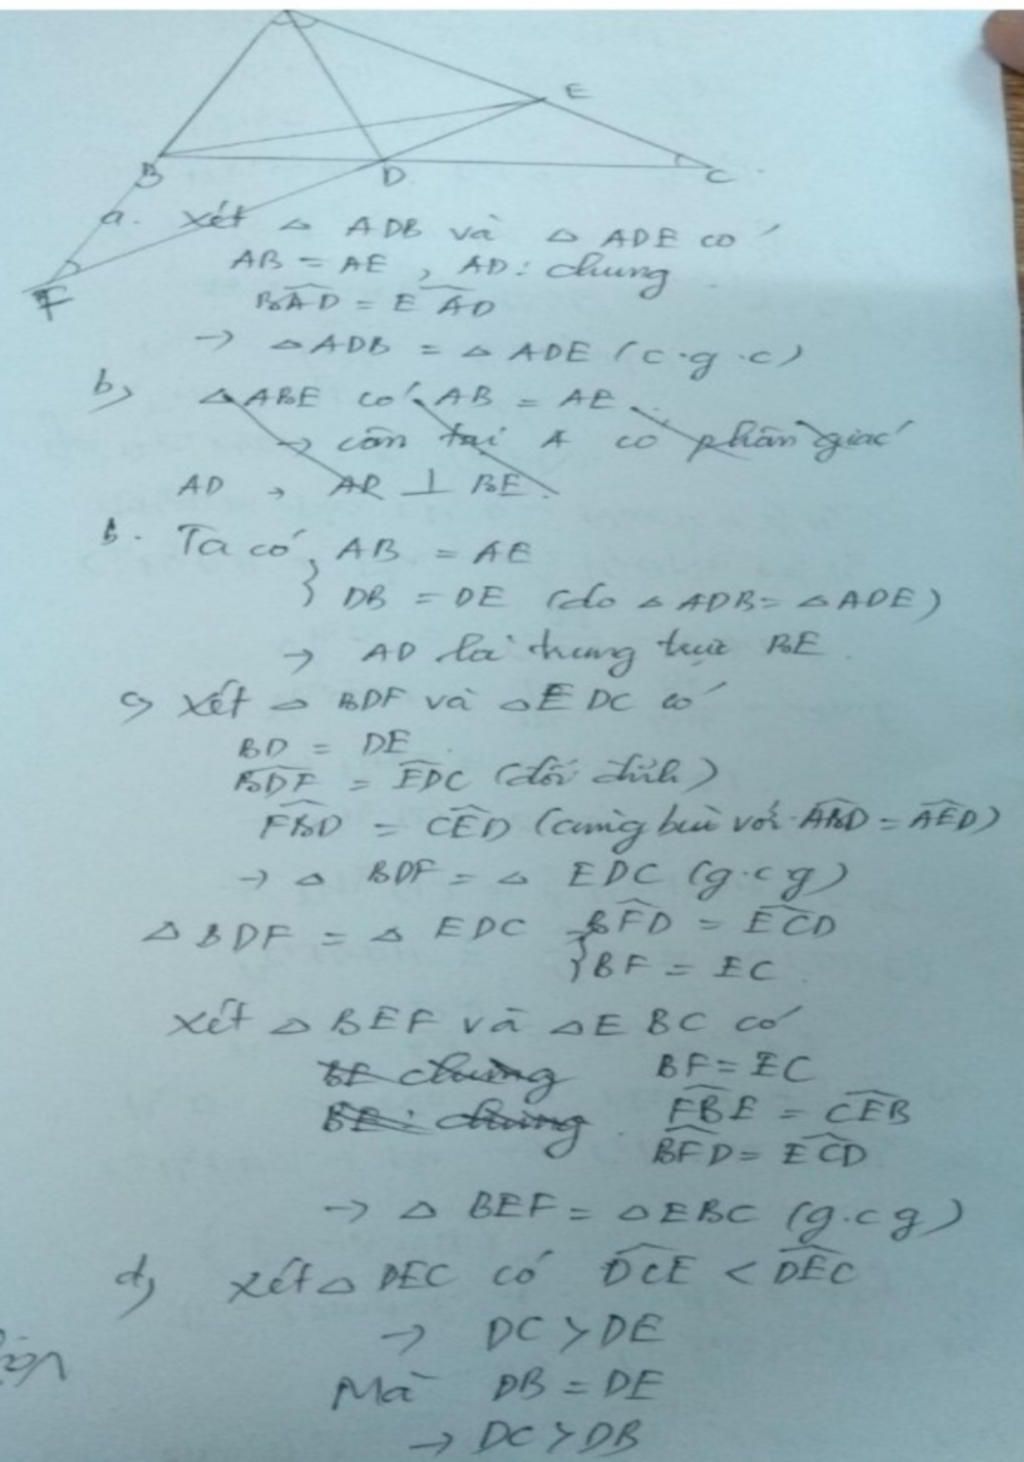 E
B D C
F
a. Xét △ ADB và △ ADE có
AB = AE , AD : chung
BAD = EAD
→ △ADB = △ADE (c.g.c)
b, △ABE có AB = AE
→ cân tại A có phân giác
AD → AD ⊥ BE.
b. Ta có { AB = AE
DB = DE (do △ADB = △ADE)
→ AD là trung trực BE.
c, Xét △ BDF và △EDC có
BD = DE.
BDF = EDC (đối đỉnh)
FBD = CED (cùng bù với ABD = AED)
→ △ BDF = △ EDC (g.c.g)
△BDF = △ EDC { BFD = ECD
BF = EC.
Xét △BEF và △EBC có
BE chung BF = EC
BE : chung. FBE = CEB
BFD = ECD
→ △ BEF = △EBC (g.c.g)
d, Xét △ DEC có DCE < DEC
→ DC > DE
Mà DB = DE
→ DC > DB